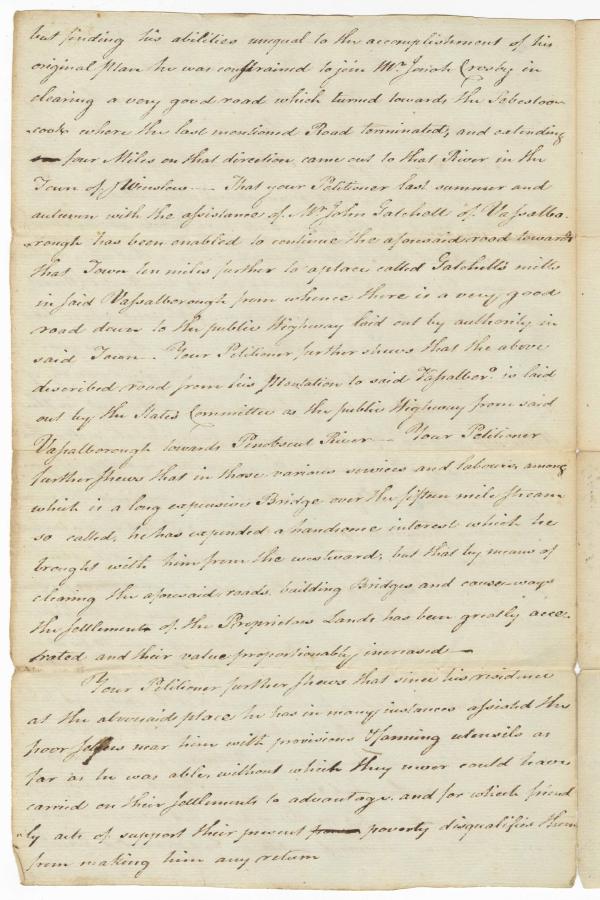 but finding his abilities unequal to the accomplishment of his
original plan he was constrained to join Mr. Josiah Crosby in
clearing a very good road which turned towards the Sebestoo-
-cook where the last mentioned Road terminated, and extending
four Miles on that direction came out to that River in the
Town of Winslow — That your Petitioner last summer and
autumn with the assistance of Mr John Gatchell of Vassalbo-
-rough has been enabled to continue the aforesaid road towards
that Town ten miles further to a place called Gatchell's mills
in said Vassalborough from whence there is a very good
road down to the public Highway laid out by authority in
said Town — Your Petitioner further shews that the above
described road from his Plantation to said Vassalboro. is laid
out by the States Committee as the public Highway from said
Vassalborough towards Penobscut River — Your Petitioner
further shews that in those various services and labours, among
which is a long expensive Bridge over the fifteen mile stream
so called, he has expended a handsome interest which he
brought with him from the westward; but that by means of
clearing the aforesaid roads, building Bridges and causeways
the settlement of the Proprietors Lands has been greatly acce-
-lrated and their value proportionably increased —
Your Petitioner further shews that since his residence
at the abovesaid place he has in many instances assisted the
poor near him with provisions & farming utensils as
far as he was able, without which they never could have
carried on their settlements to advantage, and for which friend
-ly acts of support their present poverty disqualifies them
from making him any return